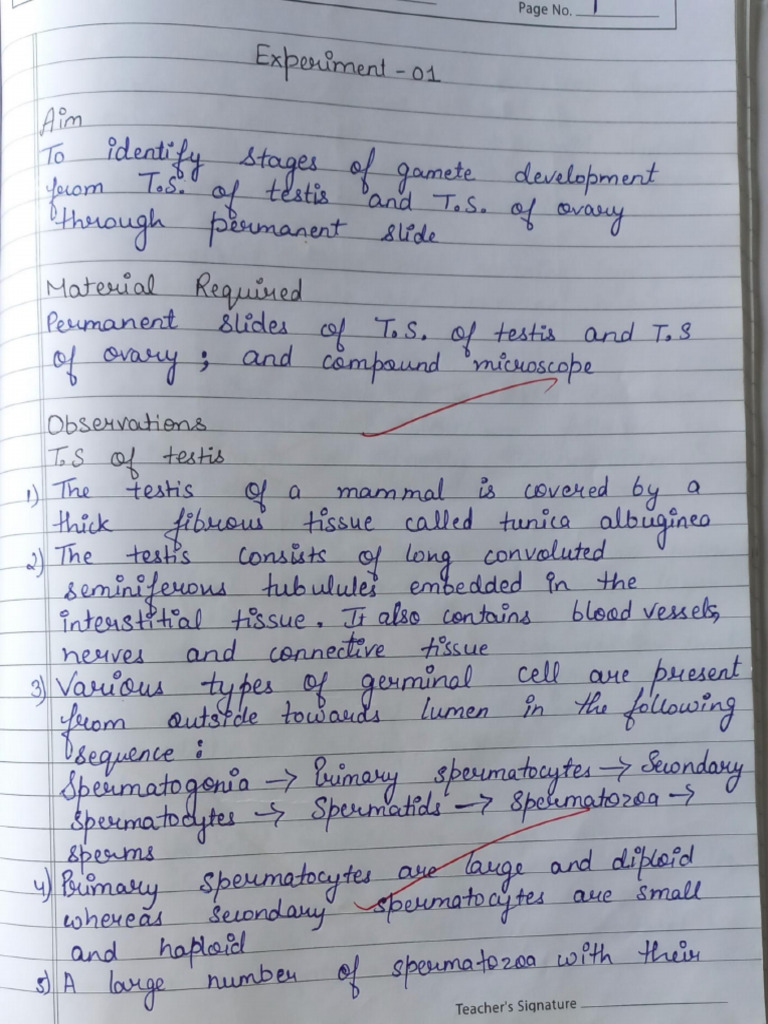 Page No. 1
Experiment - 01
Aim
To identify stages of gamete development
from T.S. of testis and T.S. of ovary
through permanent slide
Material Required
Permanent slides of T.S. of testis and T.S
of ovary ; and compound microscope
Observations
T.S of testis
1) The testis of a mammal is covered by a
thick fibrous tissue called tunica albuginea
2) The testis consists of long convoluted
seminiferous tubulules embedded in the
interstitial tissue. It also contains blood vessels,
nerves and connective tissue
3) Various types of germinal cell are present
from outside towards lumen in the following
sequence :
Spermatogonia → Primary spermatocytes → Secondary
spermatocytes → Spermatids → spermatozoa →
sperms
4) Primary spermatocytes are large and diploid
whereas secondary spermatocytes are small
and haploid
5) A large number of spermatozoa with their
Teacher's Signature